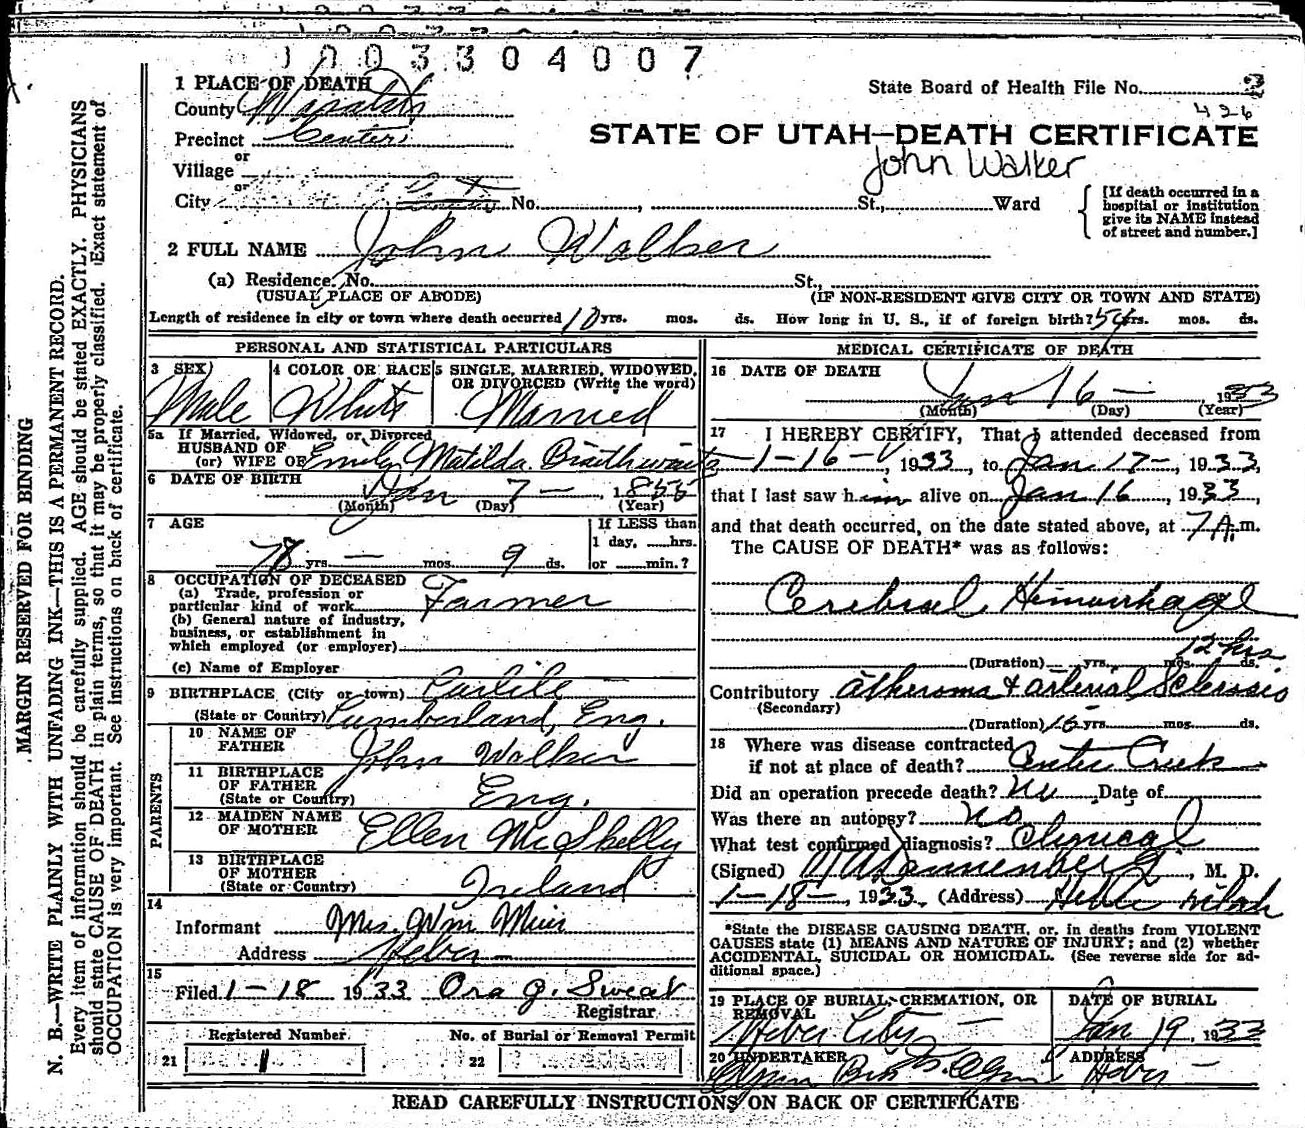 1003304007
1 PLACE OF DEATH
State Board of Health File No. 2
County Wasatch
426
Precinct Center
STATE OF UTAH—DEATH CERTIFICATE
or
John Walker
Village
or
City No. , St., Ward
[If death occurred in a
hospital or institution
give its NAME instead
of street and number.]
2 FULL NAME John Walker
(a) Residence. No. St.,
(USUAL PLACE OF ABODE) (IF NON-RESIDENT GIVE CITY OR TOWN AND STATE)
Length of residence in city or town where death occurred 10 yrs. mos. ds. How long in U. S., if of foreign birth? 54 yrs. mos. ds.
PERSONAL AND STATISTICAL PARTICULARS
3 SEX
Male
4 COLOR OR RACE
White
5 SINGLE, MARRIED, WIDOWED,
OR DIVORCED (Write the word)
Married
5a If Married, Widowed, or Divorced
HUSBAND OF
(or) WIFE OF Emily Matilda Braithwaite
6 DATE OF BIRTH
Jan 7 — , 1855
(Month) (Day) (Year)
7 AGE
78 yrs. — mos. 9 ds.
If LESS than
1 day, hrs.
or min.?
8 OCCUPATION OF DECEASED
(a) Trade, profession or
particular kind of work Farmer
(b) General nature of industry,
business, or establishment in
which employed (or employer)
(c) Name of Employer
9 BIRTHPLACE (City or town) Carlile
(State or Country) Cumberland, Eng.
PARENTS
10 NAME OF
FATHER John Walker
11 BIRTHPLACE
OF FATHER
(State or Country) Eng.
12 MAIDEN NAME
OF MOTHER Ellen McSkelly
13 BIRTHPLACE
OF MOTHER
(State or Country) Ireland
14
Informant Mrs. Wm Muir
Address Heber
15
Filed 1-18 1933 Ora J. Sweat
Registrar
Registered Number
21 1
No. of Burial or Removal Permit
22
MEDICAL CERTIFICATE OF DEATH
16 DATE OF DEATH
Jan 16 — 1933
(Month) (Day) (Year)
17 I HEREBY CERTIFY, That I attended deceased from
1-16- , 1933, to Jan 17-, 1933,
that I last saw him alive on Jan 16, 1933,
and that death occurred, on the date stated above, at 7 A.m.
The CAUSE OF DEATH* was as follows:
Cerebral Hemorrhage
12 hrs.
(Duration) yrs. mos. ds.
Contributory Atheroma & arterial Sclerosis
(Secondary)
(Duration) 15 yrs. mos. ds.
18 Where was disease contracted
if not at place of death? Center Creek
Did an operation precede death? no Date of
Was there an autopsy? no
What test confirmed diagnosis? Clinical
(Signed) Dannenberg, M. D.
1-18-, 1933, (Address) Heber Utah
*State the DISEASE CAUSING DEATH, or, in deaths from VIOLENT
CAUSES state (1) MEANS AND NATURE OF INJURY; and (2) whether
ACCIDENTAL, SUICIDAL OR HOMICIDAL. (See reverse side for ad-
ditional space.)
19 PLACE OF BURIAL, CREMATION, OR
REMOVAL
Heber City —
DATE OF BURIAL
Jan 19, 1933
20 UNDERTAKER
Olpin
ADDRESS
Heber —
READ CAREFULLY INSTRUCTIONS ON BACK OF CERTIFICATE
MARGIN RESERVED FOR BINDING
N. B.—WRITE PLAINLY WITH UNFADING INK—THIS IS A PERMANENT RECORD.
Every item of information should be carefully supplied. AGE should be stated EXACTLY. PHYSICIANS
should state CAUSE OF DEATH in plain terms, so that it may be properly classified. Exact statement of
OCCUPATION is very important. See instructions on back of certificate.